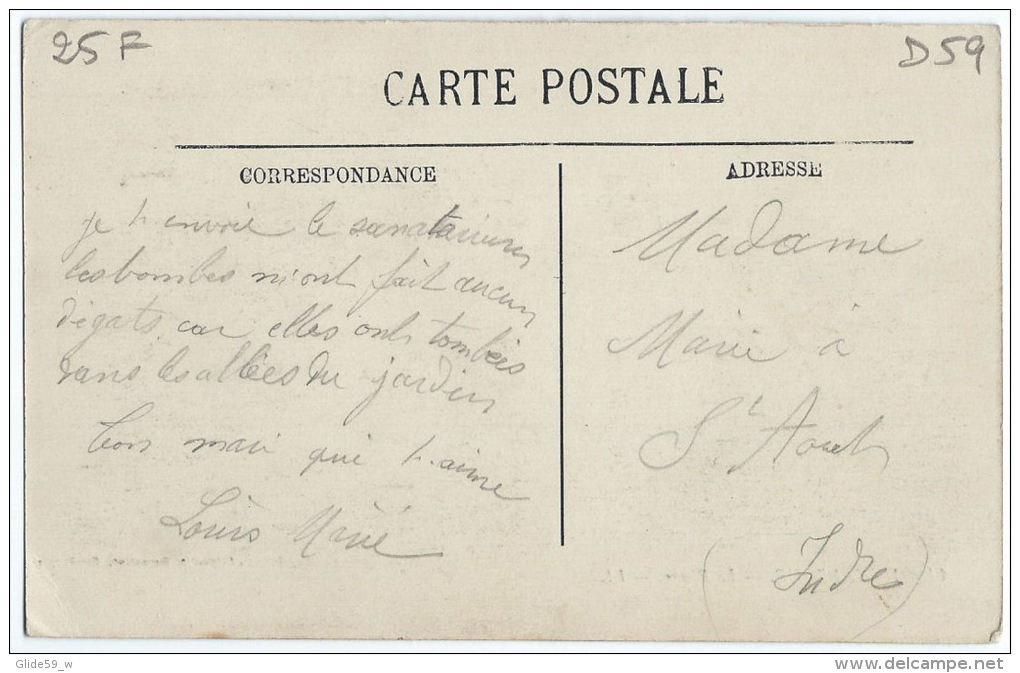 25 F
D59
CARTE POSTALE
CORRESPONDANCE
je t envoie le sanatorium
les bombes n'i ont fait aucun
dégats car elles ont tombées
dans les allées du jardin
ton mari qui t. aime
Louis
ADRESSE
Madame
à
St Aout
(Indre)
Glide59_w
www.delcampe.net